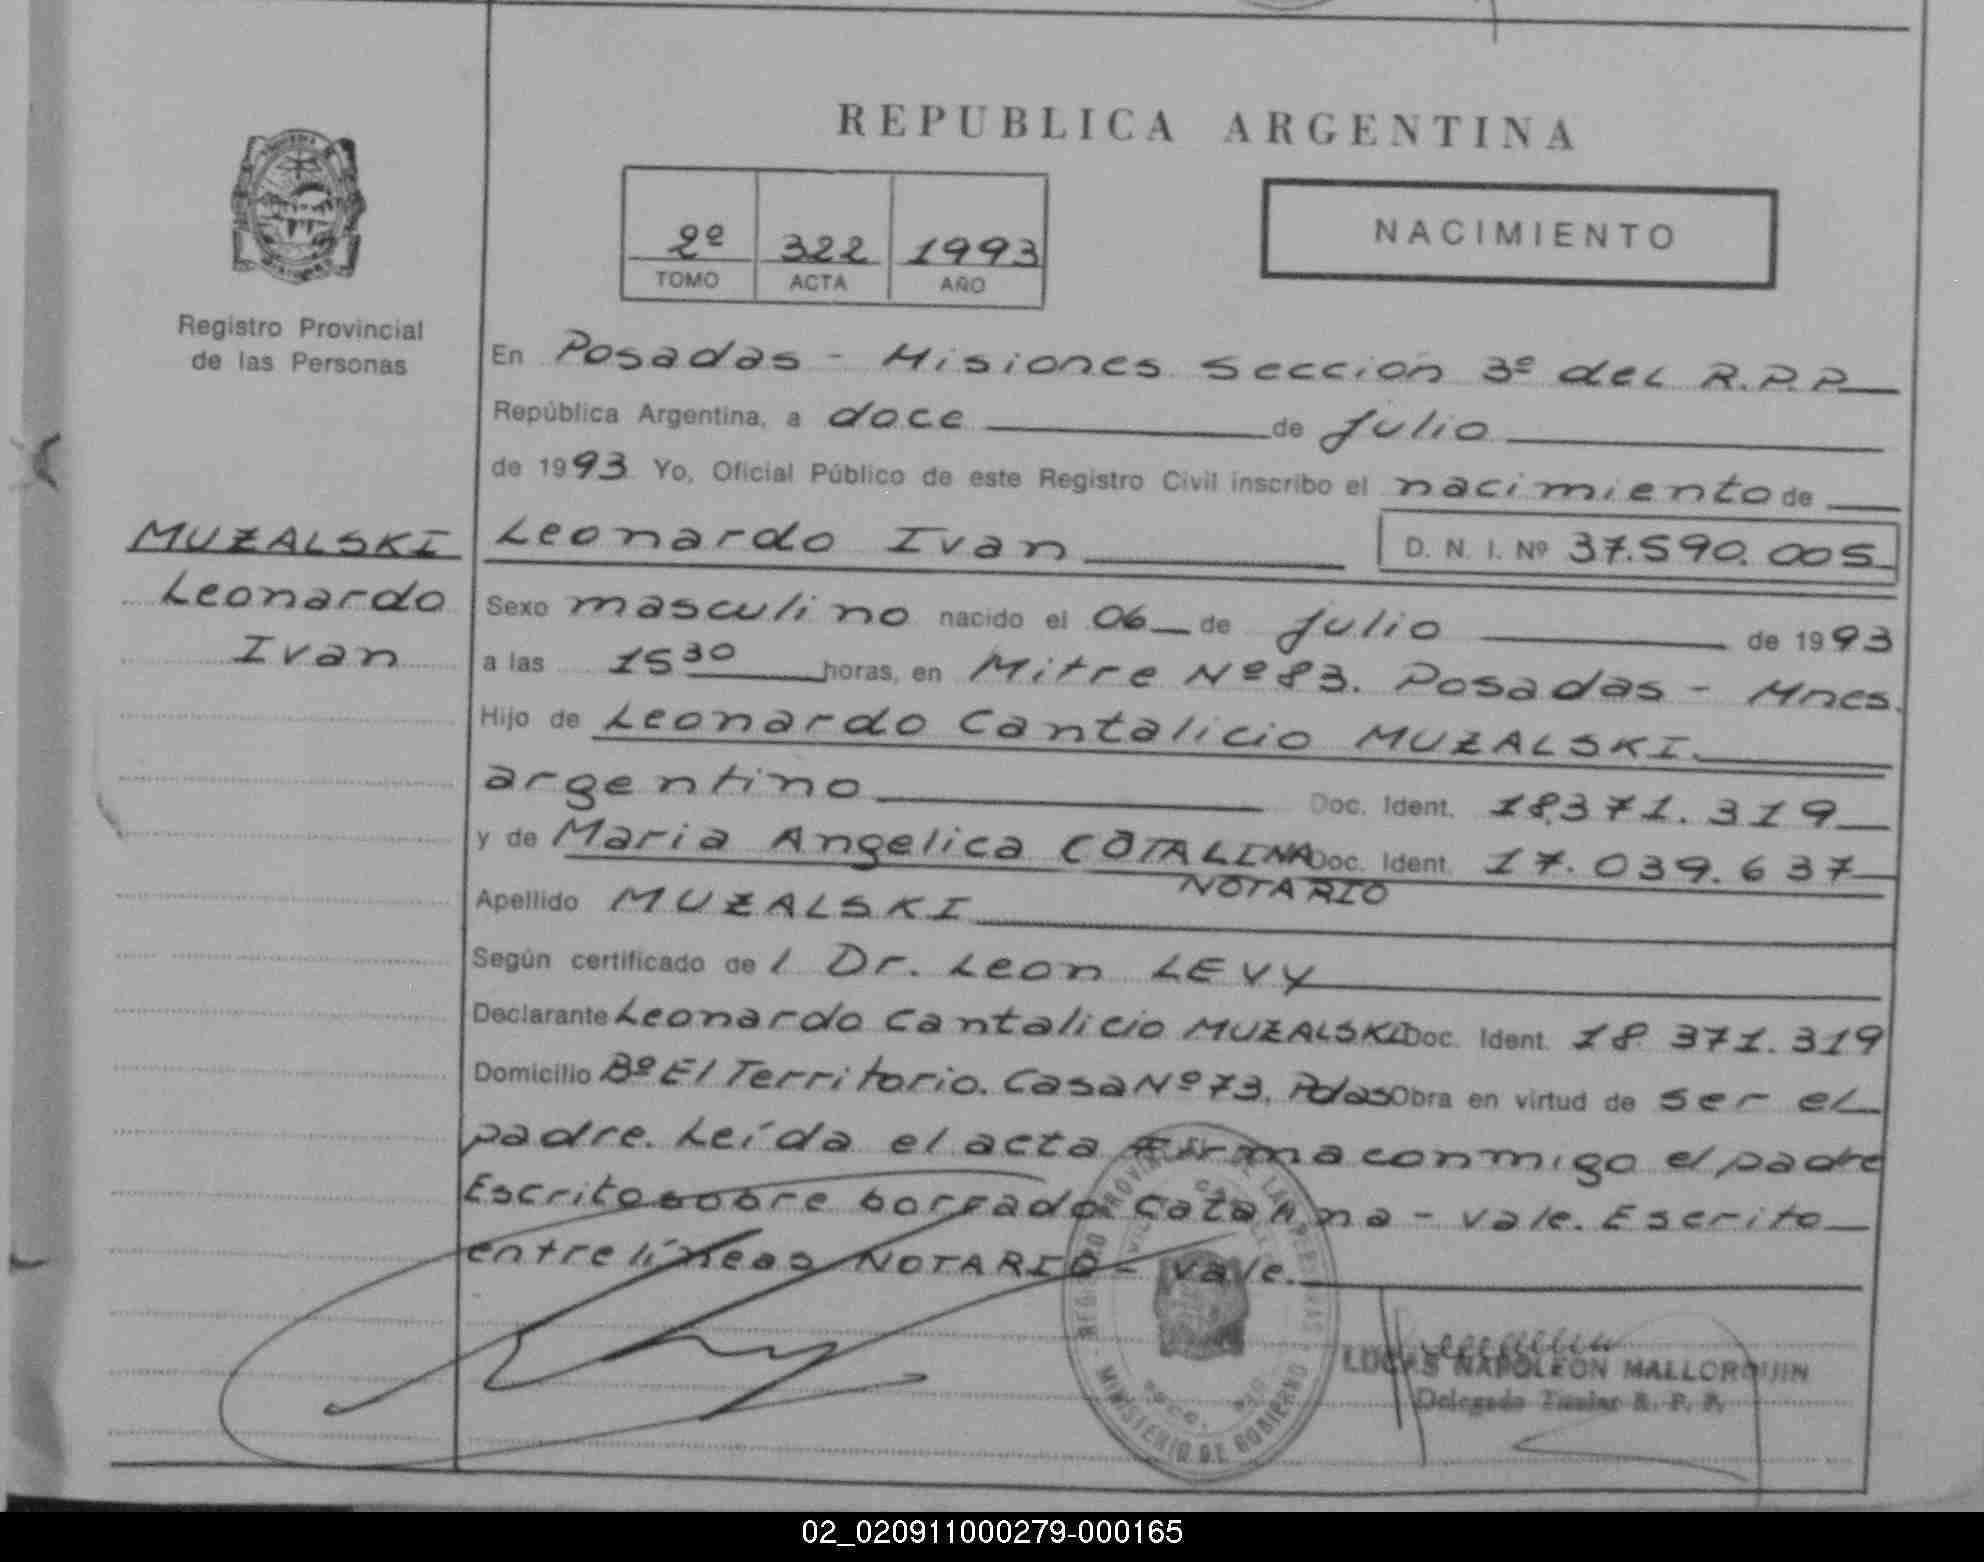 REPUBLICA ARGENTINA
2º 322 1993
TOMO ACTA AÑO
NACIMIENTO
Registro Provincial
de las Personas
MUZALSKI
Leonardo
Ivan
En Posadas - Misiones Sección 3º del R.P.P.
República Argentina, a doce de julio
de 1993 Yo, Oficial Público de este Registro Civil inscribo el nacimiento de
Leonardo Ivan D. N. I. Nº 37.590.005
Sexo masculino nacido el 06 de julio de 1993
a las 15 30 horas, en Mitre Nº 83. Posadas - Mnes.
Hijo de Leonardo Cantalicio MUZALSKI.
argentino Doc. Ident. 18.371.319
y de Maria Angelica CATALINA Doc. Ident. 17.039.637
NOTARIO
Apellido MUZALSKI
Según certificado de l Dr. Leon LEVY
Declarante Leonardo Cantalicio MUZALSKI Doc. Ident. 18.371.319
Domicilio Bº El Territorio. Casa Nº 73. Pdas Obra en virtud de ser el
padre. Leída el acta firma conmigo el padre
Escrito sobre borrado. Catalina - vale. Escrito
entre líneas NOTARIO - vale.
REGISTRO PROVINCIAL DE LAS PERSONAS
MINISTERIO DE GOBIERNO
LUCAS NAPOLEON MALLORQUIN
Delegado Titular R. P. P.
02_020911000279-000165